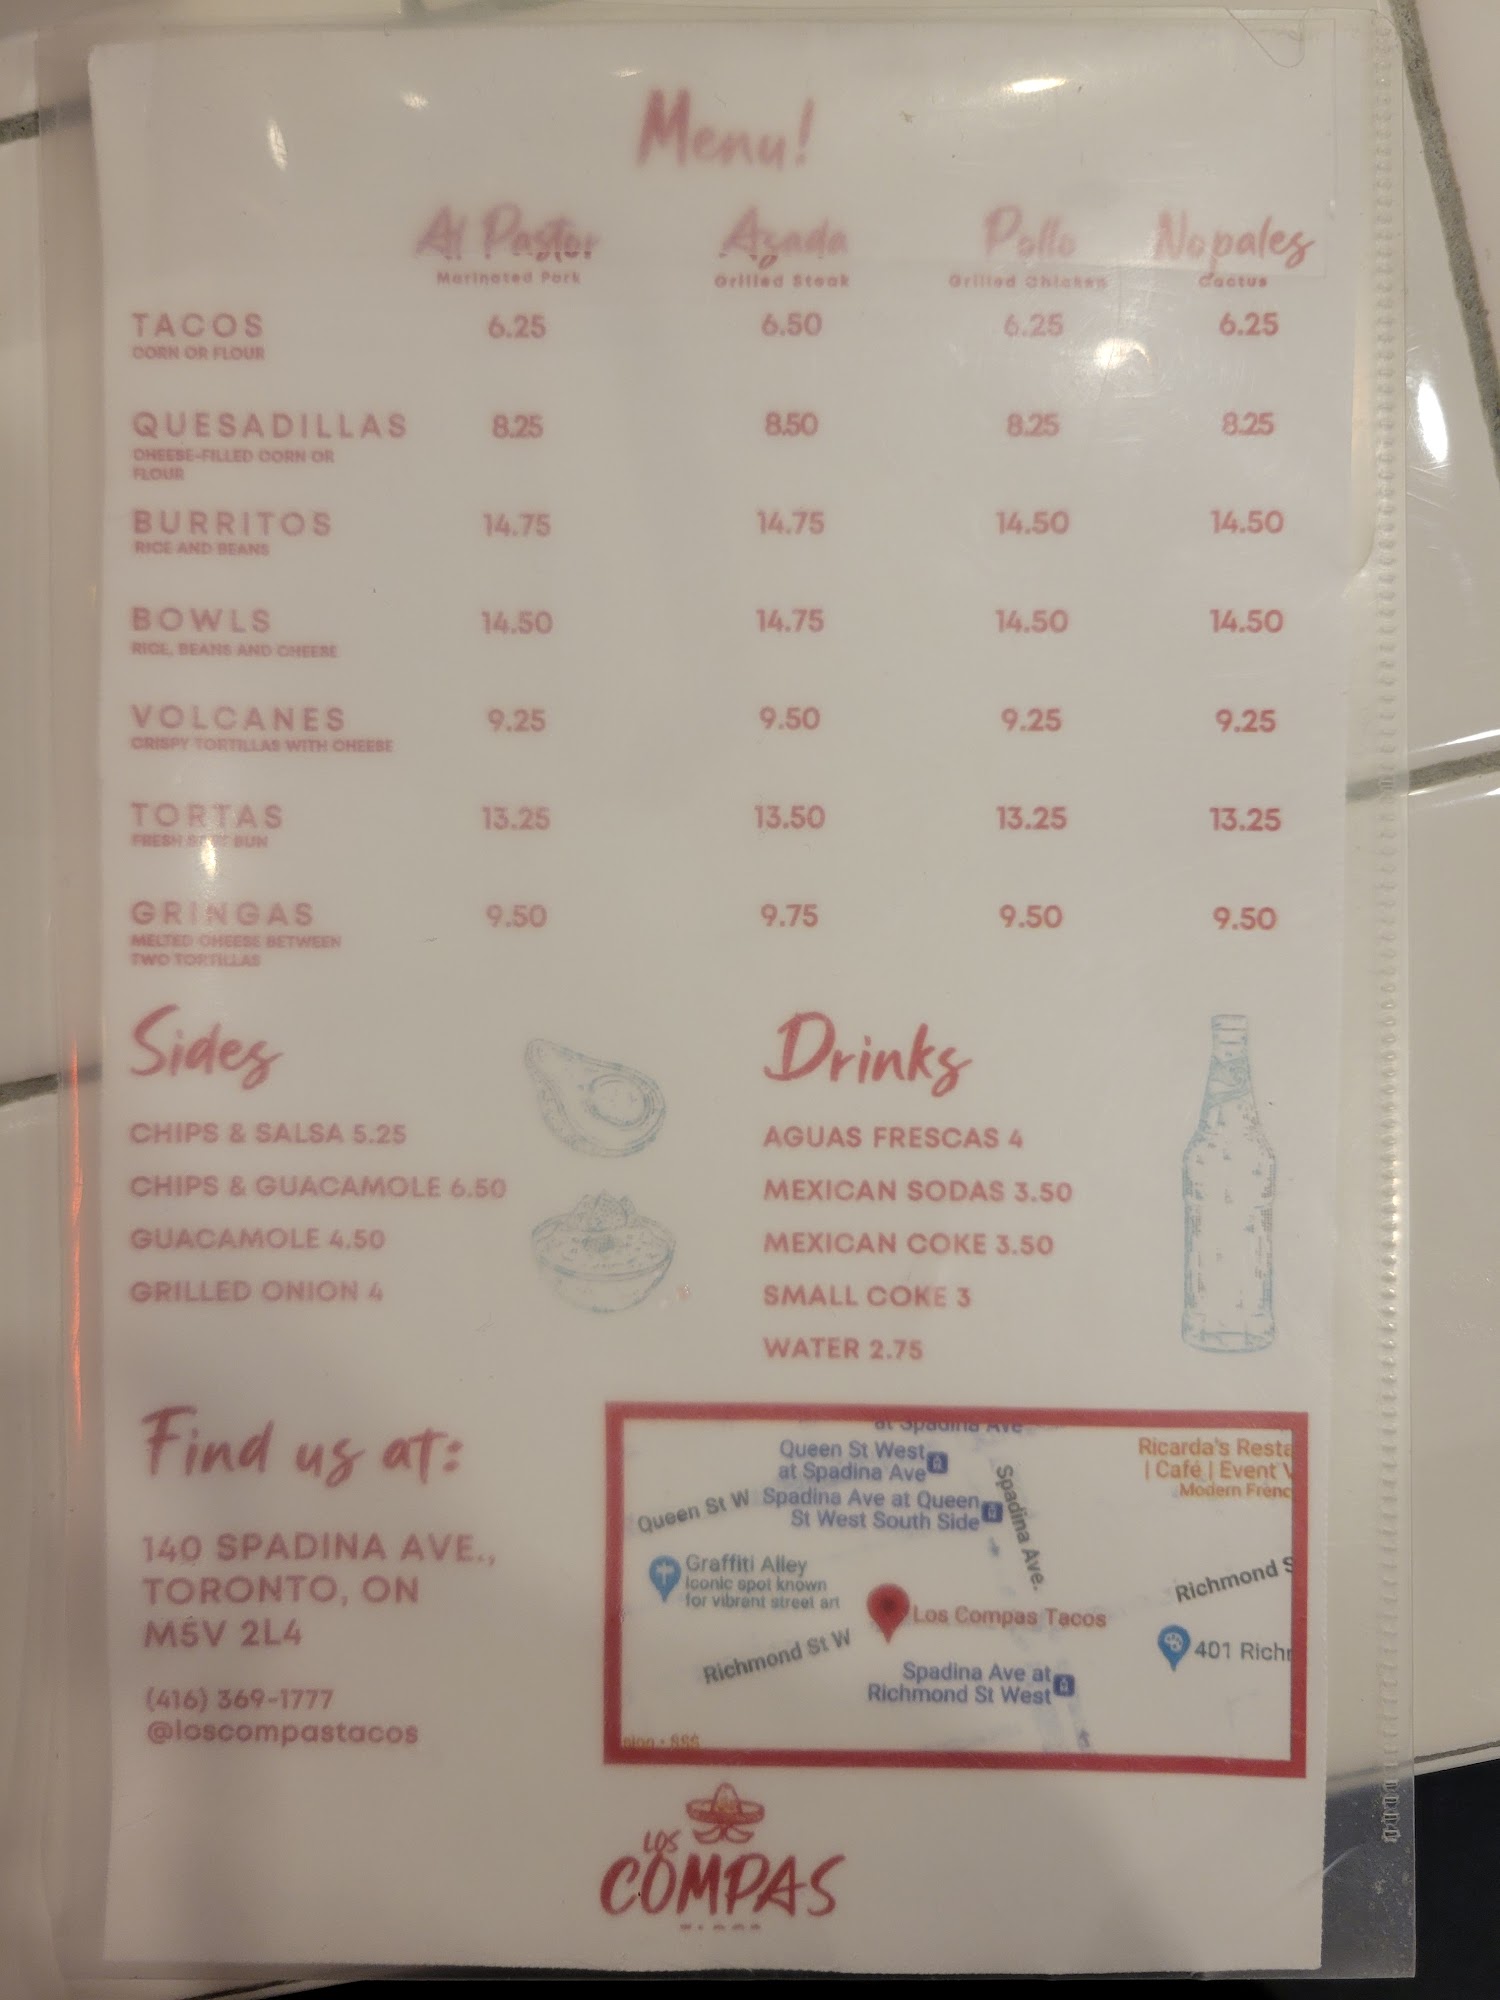 Menu!
Al Pastor Asada Pollo Nopales
Marinated Pork Grilled Steak Grilled Chicken Cactus
TACOS 6.25 6.50 6.25 6.25
CORN OR FLOUR
QUESADILLAS 8.25 8.50 8.25 8.25
CHEESE-FILLED CORN OR
FLOUR
BURRITOS 14.75 14.75 14.50 14.50
RICE AND BEANS
BOWLS 14.50 14.75 14.50 14.50
RICE, BEANS AND CHEESE
VOLCANES 9.25 9.50 9.25 9.25
CRISPY TORTILLAS WITH CHEESE
TORTAS 13.25 13.50 13.25 13.25
FRESH SOFT BUN
GRINGAS 9.50 9.75 9.50 9.50
MELTED CHEESE BETWEEN
TWO TORTILLAS
Sides
CHIPS & SALSA 5.25
CHIPS & GUACAMOLE 6.50
GUACAMOLE 4.50
GRILLED ONION 4
Drinks
AGUAS FRESCAS 4
MEXICAN SODAS 3.50
MEXICAN COKE 3.50
SMALL COKE 3
WATER 2.75
Find us at:
140 SPADINA AVE.,
TORONTO, ON
M5V 2L4
(416) 369-1777
@loscompastacos
at Spadina Ave
Queen St West
at Spadina Ave
Spadina Ave at Queen
St West South Side
Queen St W
Spadina Ave.
Ricarda's Resta
| Café | Event V
Modern Frenc
Graffiti Alley
Iconic spot known
for vibrant street art
Richmond S
Los Compas Tacos
Richmond St W
401 Richr
Spadina Ave at
Richmond St West
sion · $$$
LOS
COMPAS
TACOS